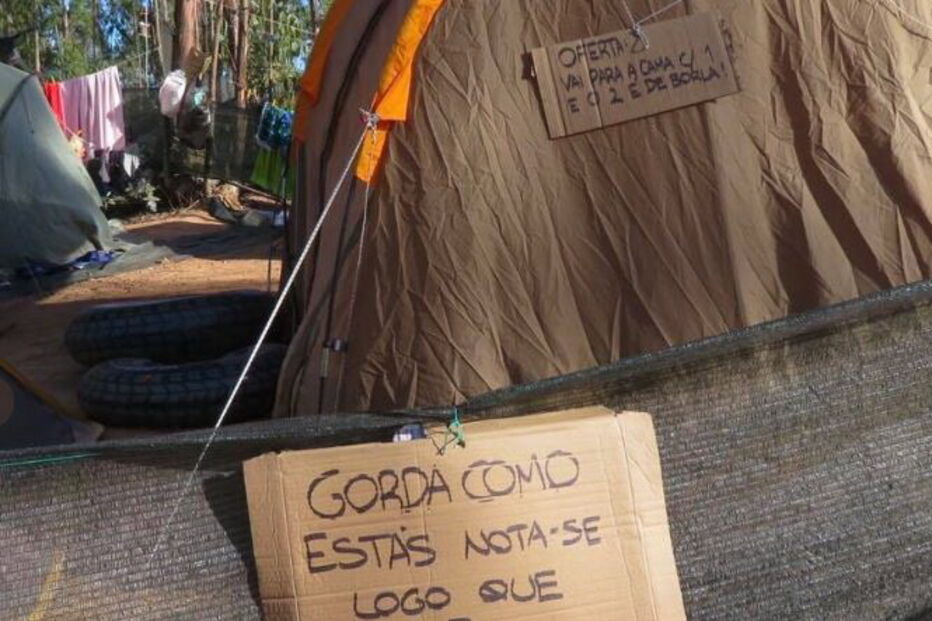 OFERTA: 2
VAI PARA A CAMA C/ 1
E O 2 E DE BORLA!
GORDA COMO
ESTÁS NOTA-SE
LOGO QUE